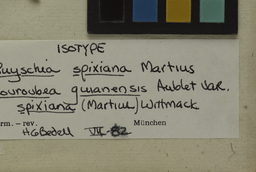 ISOTYPE
uyschia spixiana Martius
ouroubea guianensis Aublet var.
spixiana (Martius) Wittmack
rm. – rev. München
HGBedell VII-82